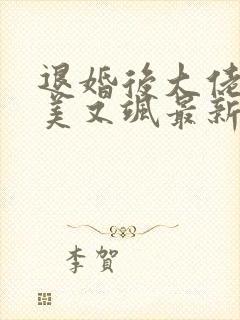 退婚後大佬
美又颯最新
李賀